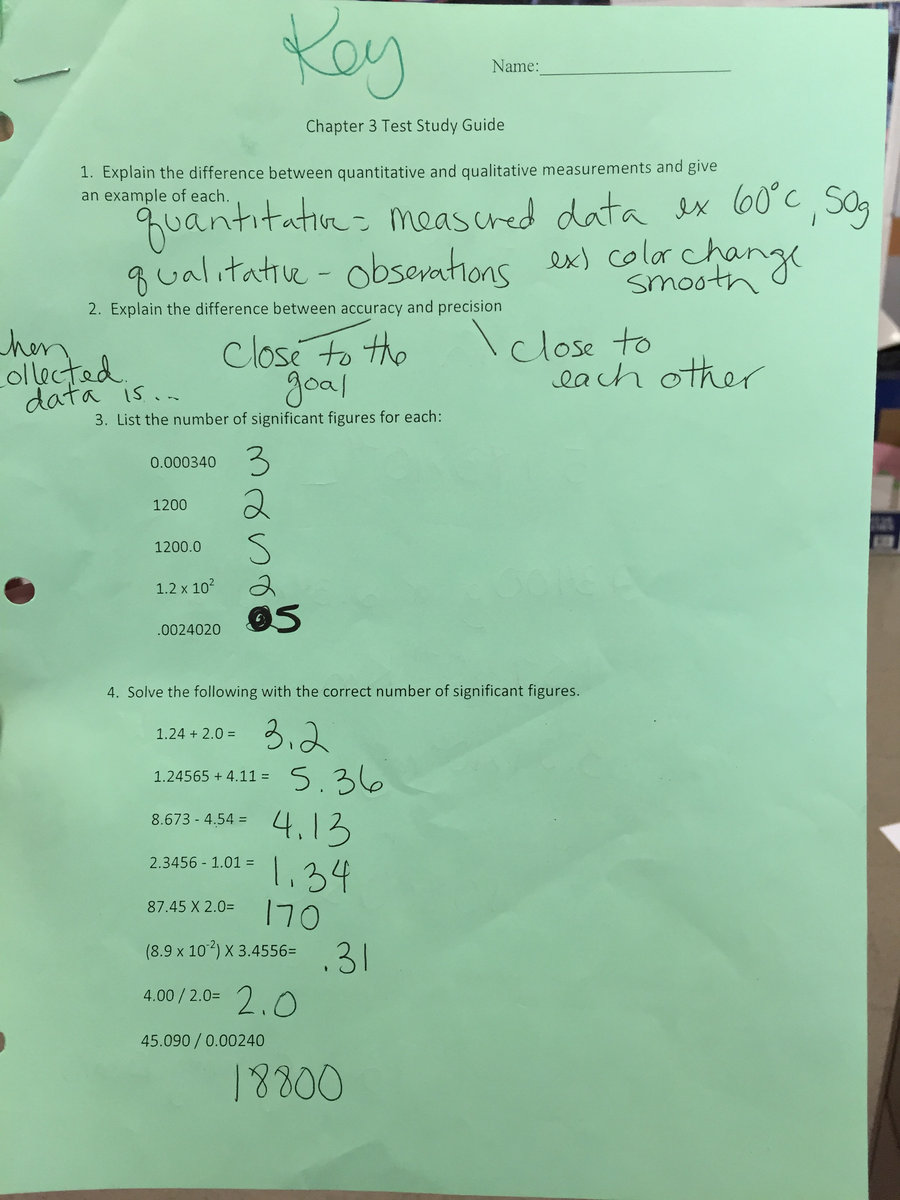 Key
Name:
Chapter 3 Test Study Guide
1. Explain the difference between quantitative and qualitative measurements and give
an example of each.
quantitative = measured data ex 60°C, 50g
qualitative - obserations ex) color change
smooth
2. Explain the difference between accuracy and precision
hen
ollected
data is...
Close to the
goal
close to
each other
3. List the number of significant figures for each:
0.000340 3
1200 2
1200.0 5
1.2 x 10² 2
.0024020 5
4. Solve the following with the correct number of significant figures.
1.24 + 2.0 = 3.2
1.24565 + 4.11 = 5.36
8.673 - 4.54 = 4.13
2.3456 - 1.01 = 1.34
87.45 X 2.0= 170
(8.9 x 10⁻²) X 3.4556= .31
4.00 / 2.0= 2.0
45.090 / 0.00240
18800